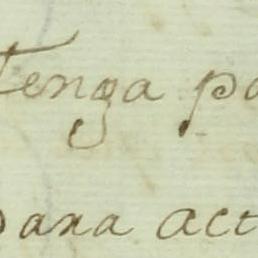 Tenga pa
para act